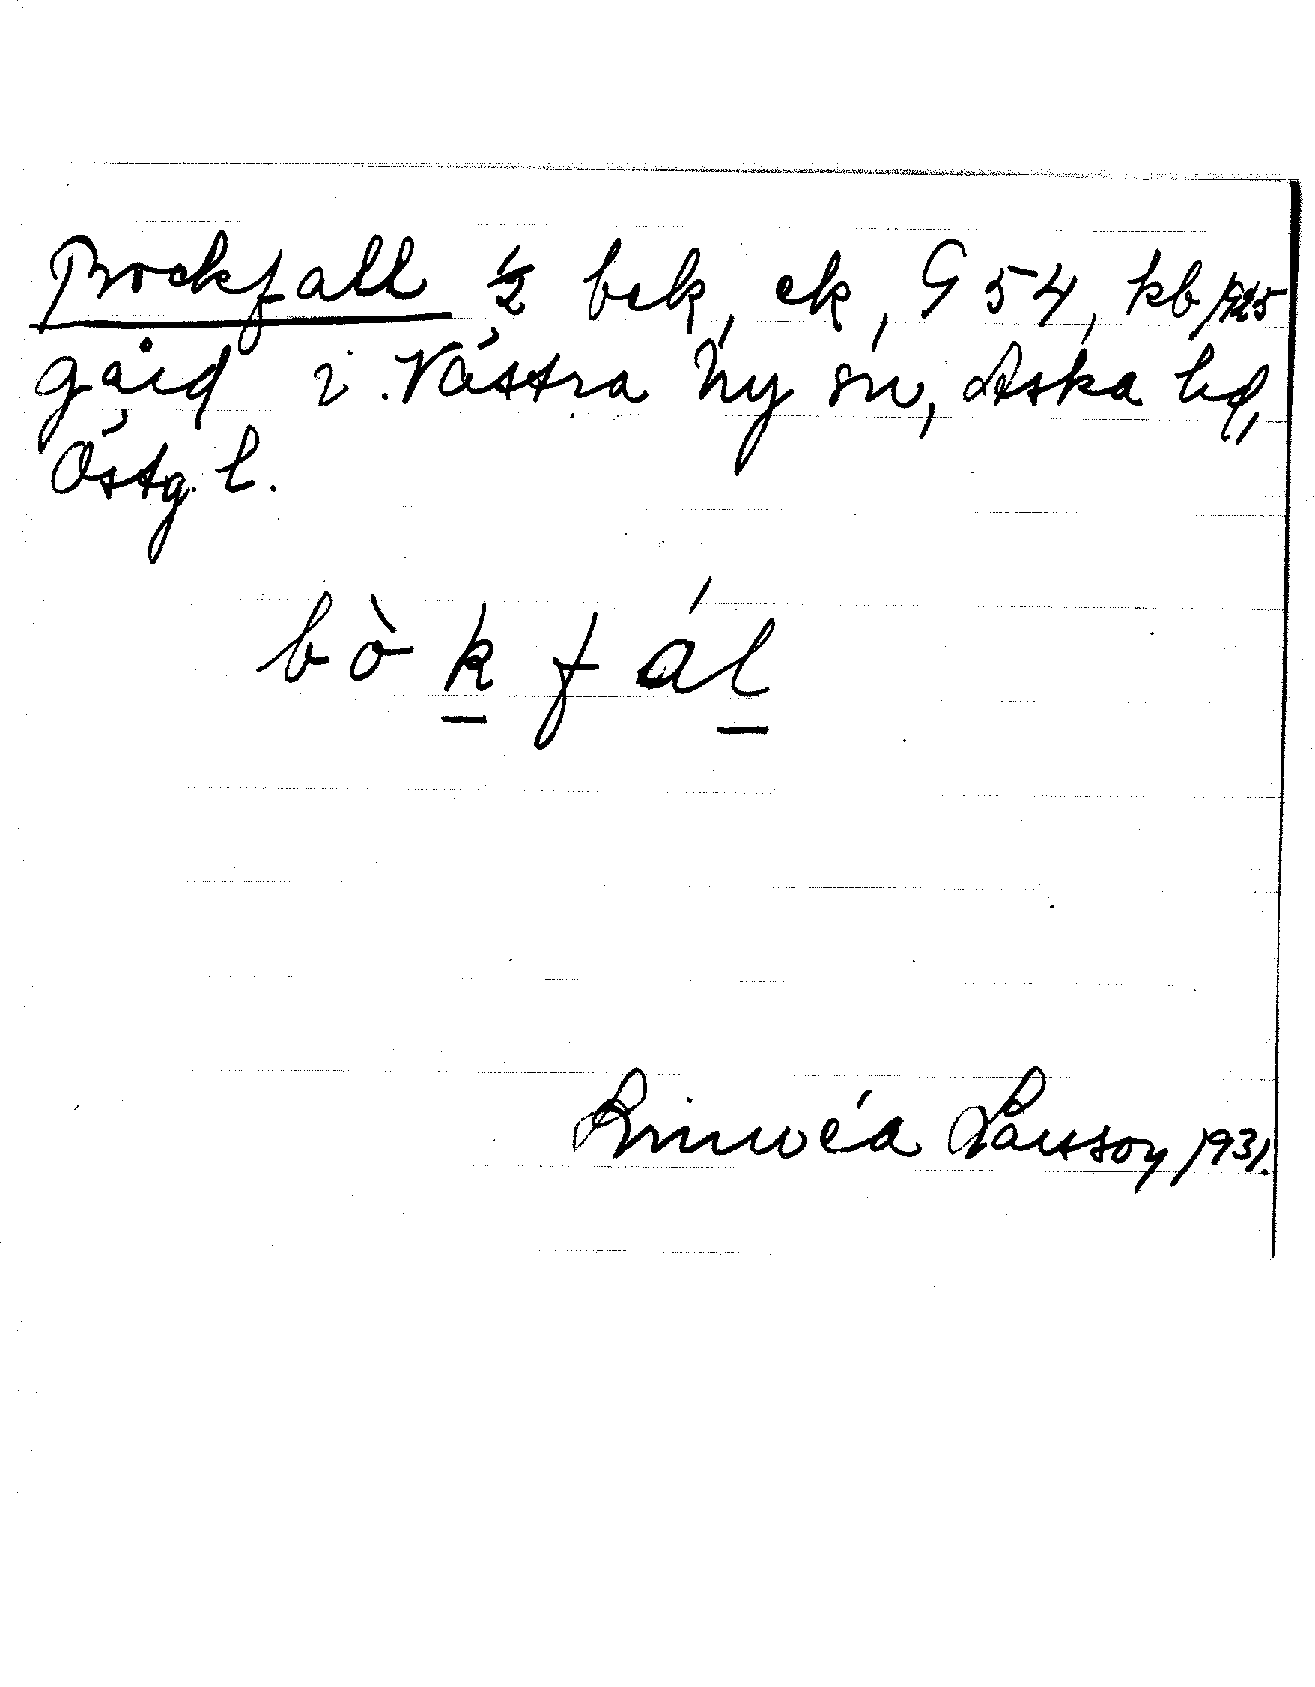 Bockfall ½ bck, ek, G 54, kb 1925
gård i Västra Ny sn, Aska hd,
Östg. l.
bò k f ál
Linnéa Larsson 1931.